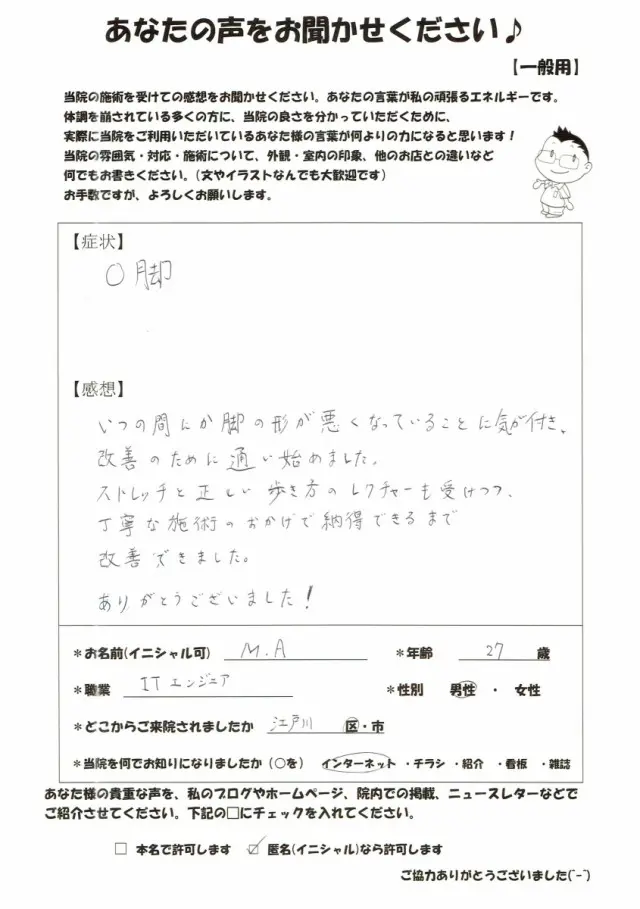 あなたの声をお聞かせください♪
【一般用】
当院の施術を受けての感想をお聞かせください。あなたの言葉が私の頑張るエネルギーです。
体調を崩されている多くの方に、当院の良さを分かっていただくために、
実際に当院をご利用いただいているあなた様の言葉が何よりの力になると思います！
当院の雰囲気・対応・施術について、外観・室内の印象、他のお店との違いなど
何でもお書きください。（文やイラストなんでも大歓迎です）
お手数ですが、よろしくお願いします。
【症状】
O脚
【感想】
いつの間にか脚の形が悪くなっていることに気が付き、
改善のために通い始めました。
ストレッチと正しい歩き方のレクチャーも受けつつ、
丁寧な施術のおかげで納得できるまで
改善できました。
ありがとうございました！
＊お名前(イニシャル可) M.A ＊年齢 27 歳
＊職業 ITエンジニア ＊性別 男性 ・ 女性
＊どこからご来院されましたか 江戸川 区・市
＊当院を何でお知りになりましたか（○を） インターネット ・チラシ ・紹介 ・看板 ・雑誌
あなた様の貴重な声を、私のブログやホームページ、院内での掲載、ニュースレターなどで
ご紹介させてください。下記の□にチェックを入れてください。
□ 本名で許可します ☑ 匿名(イニシャル)なら許可します
ご協力ありがとうございました(^-^)